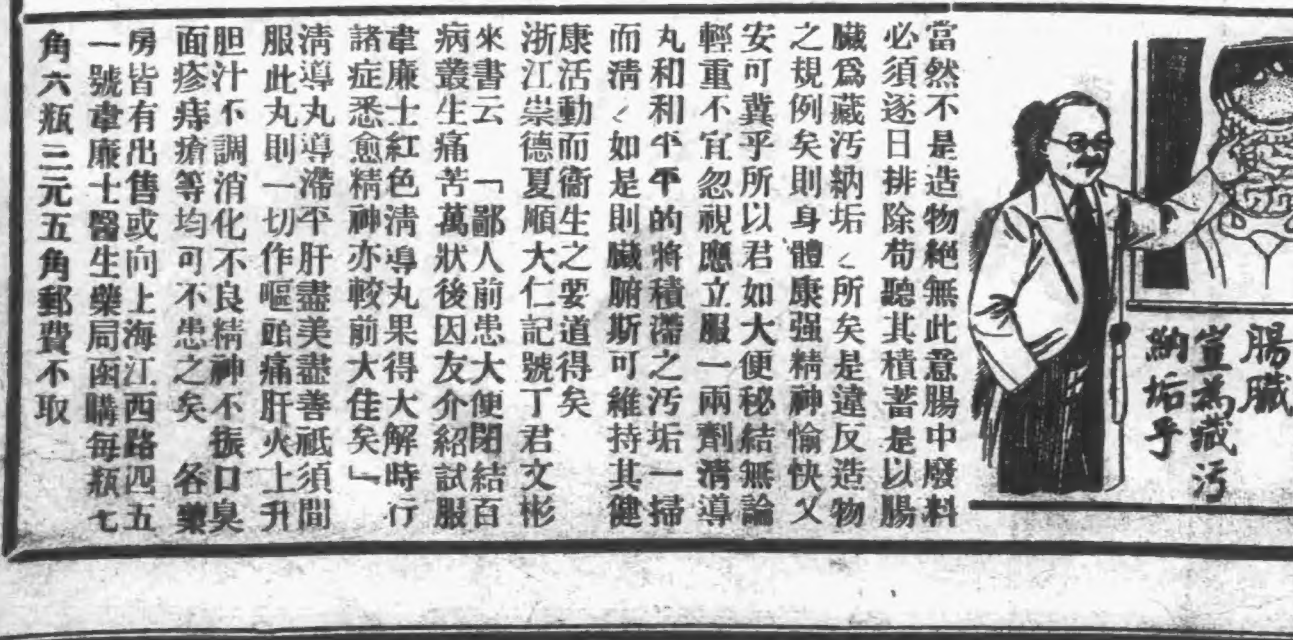 腸臟
豈爲藏污
納垢乎
當然不是造物絕無此意腸中廢料
必須逐日排除苟聽其積蓄是以腸
臟爲藏污納垢く所矣是違反造物
之規例矣則身體康强精神愉快又
安可冀乎所以君如大便秘結無論
輕重不宜忽視應立服一兩劑清導
丸和和平平的將積滯之汚垢一掃
而清く如是則臟腑斯可維持其健
康活動而衞生之要道得矣
浙江崇德夏順大仁記號丁君文彬
來書云「鄙人前患大便閉結百
病叢生痛苦萬狀後因友介紹試服
韋廉士紅色清導丸果得大解時行
諸症悉愈精神亦較前大佳矣」
清導丸導滯平肝盡美盡善祗須間
服此丸則一切作嘔頭痛肝火上升
胆汁不調消化不良精神不振口臭
面疹痔瘡等均可不患之矣 各藥
房皆有出售或向上海江西路四五
一號韋廉士醫生藥局函購每瓶七
角六瓶三元五角郵費不取